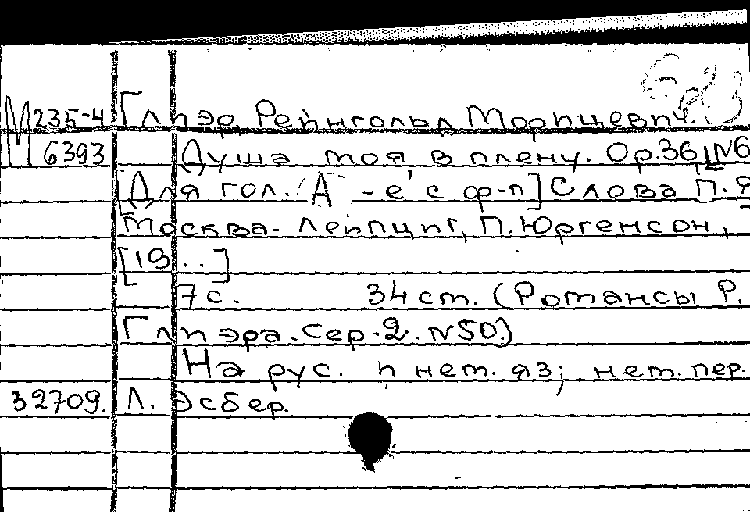 М 235-4 Глиэр Рейнгольд Морицевич.
6393 Душа моя в плену. Ор.36 N6
[Для гол. (А - е² с ф-п] Слова П. Я
Москва - Лейпциг, П. Юргенсон,
[19..]
7 с. 34 ст. (Романсы Р.
Глиэра. Сер. 2. N50.)
На рус. и нем. яз; нем. пер.
32709. Л. Эсбер.